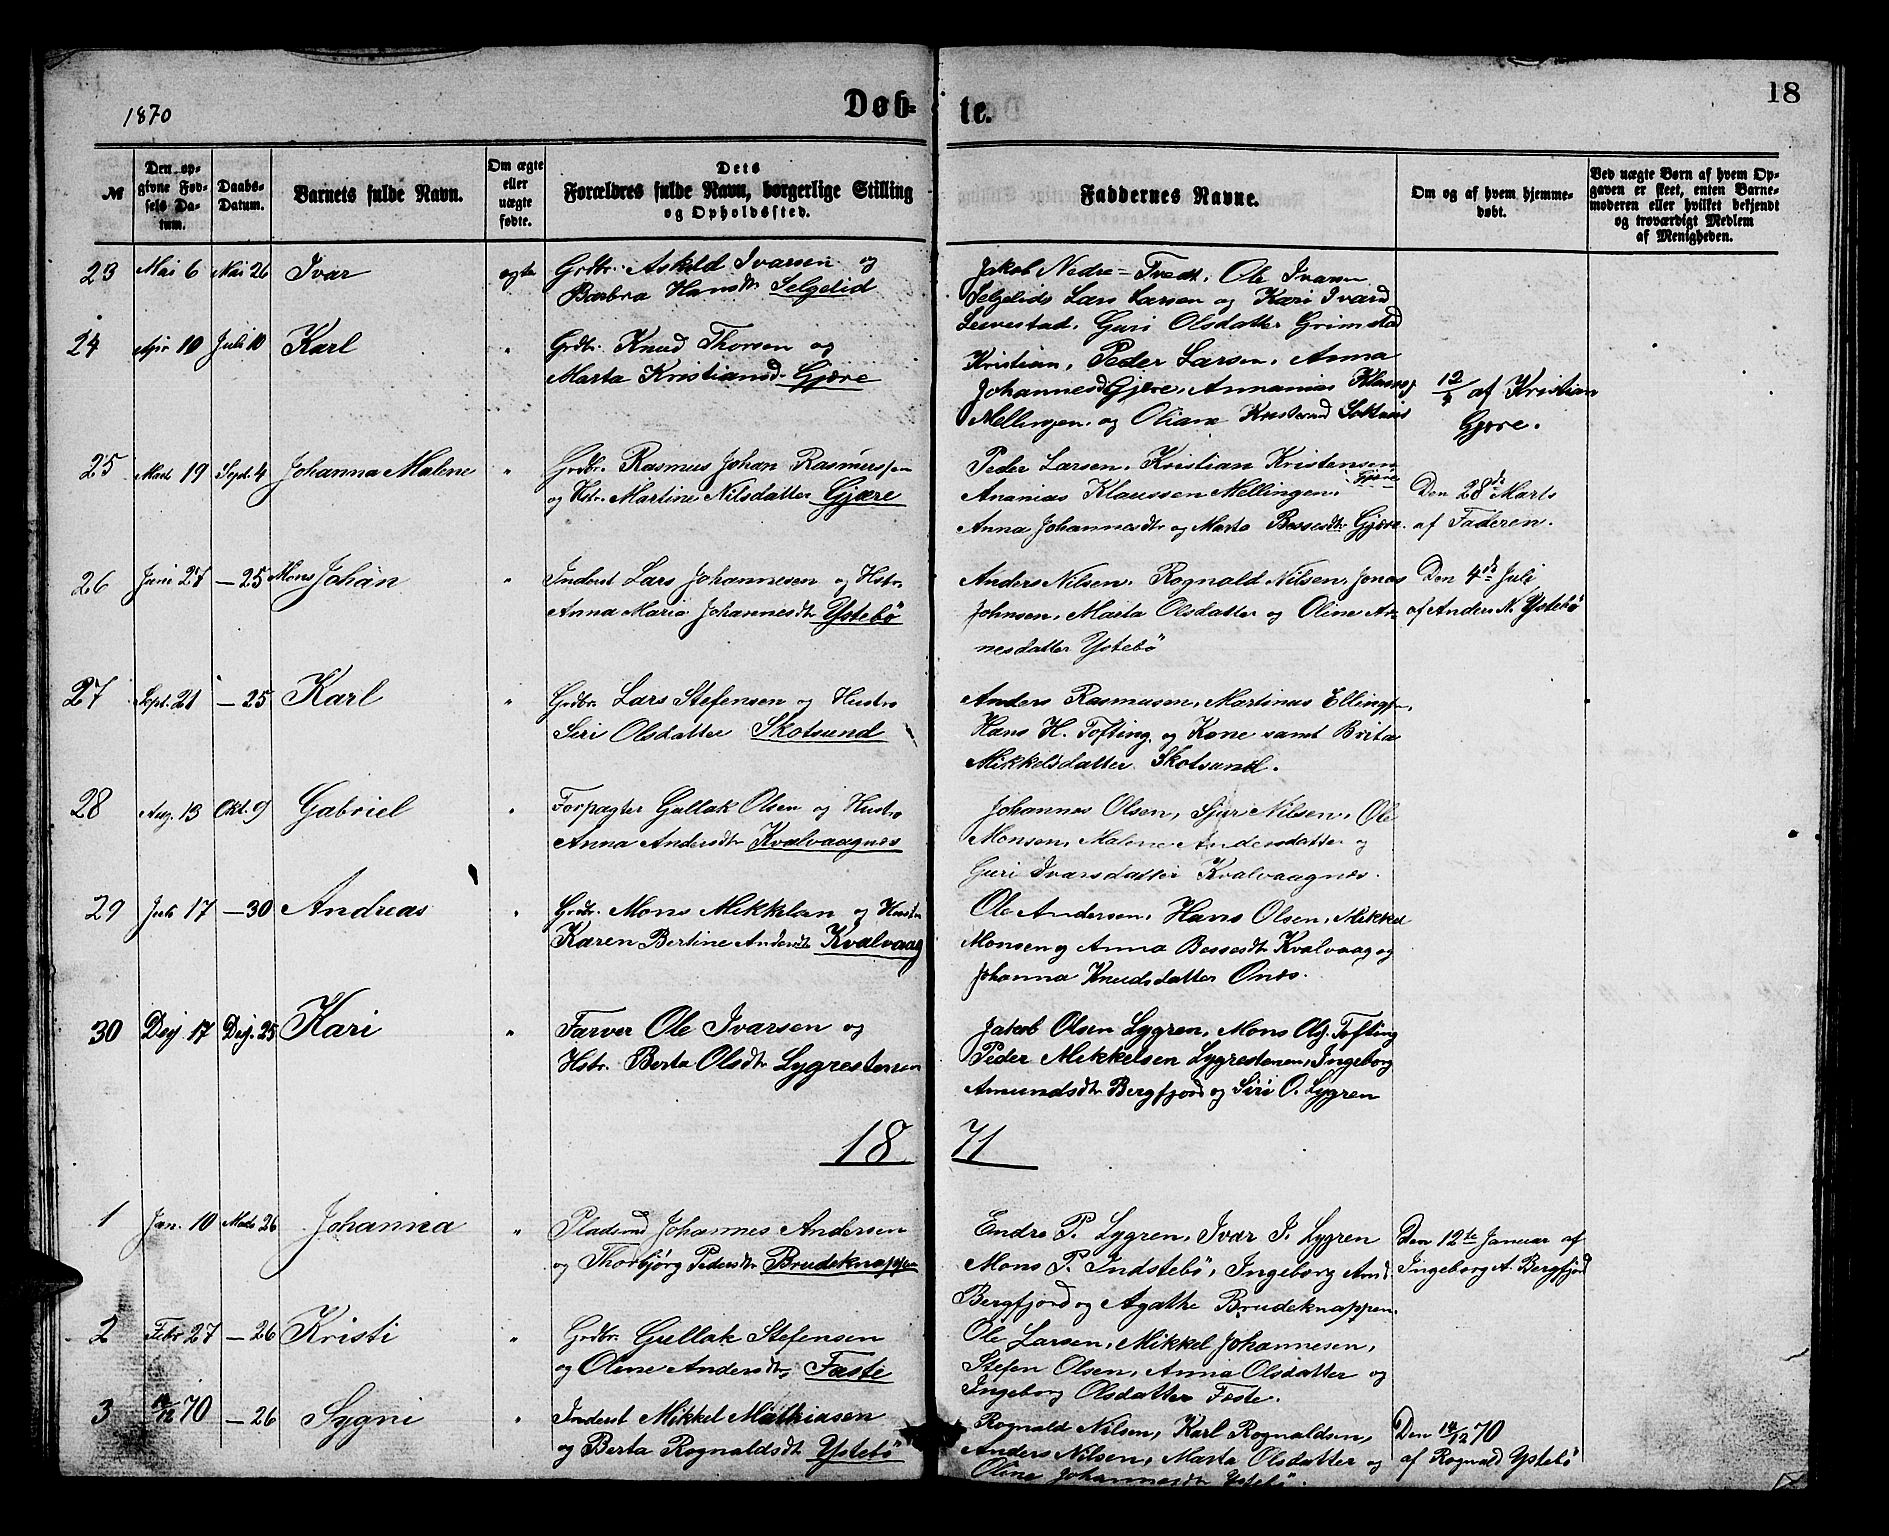 1870
Døb- te.
18
№
Den op-
givne Fød-
sels Da-
tum.
Daabs-
Datum.
Barnets fulde Navn.
Om ægte
eller
uægte
fødte.
Dets
Forældres fulde Navn, borgerlige Stilling
og Opholdssted.
Faddernes Navne.
Om og af hvem hjemme-
døbt.
Ved uægte Børn af hvem Op-
gaven er skeet, enten Barne-
moderen eller hvilket bekjendt
og troværdigt Medlem
af Menigheden.
23 Mai 6 Mai 26 Ivar ægte Grdbr. Askild Ivarsen og
Barbra Hansdtr Selgelid
Jakob Nedre-Tvedt, Ole Ivarsen
Selgelid, Lars Larsen og Kari Ivarsd
Leevestad, Guri Olsdatter Grimstad
24 Apr 10 Juli 10 Karl " Grdbr. Knud Thorsen og
Marta Kristiansd. Gjære
Kristian, Peder Larsen, Anna
Johannesd Gjære, Annanias Klauss
Mellingen og Oliane
12/4 af Kristian
Gjære.
25 Marts 19 Sept. 4 Johanna Malene " Grdbr. Rasmus Johan Rasmussen
og Hstr. Martine Nilsdatter Gjære
Peder Larsen, Kristian Kristensen
Gjære
Ananias Klaussen Mellingen,
Anna Johannesdtr og Marta Bessesdtr Gjære.
Den 28de Marts
af Faderen.
26 Juni 27 — 25 Mons Johan " Inderst Lars Johannesen og Hstr.
Anna Maria Johannesdtr Ystebö
Anders Nilsen, Rognald Nilsen, Jonas
Johnsen, Marta Olsdatter og Oline An-
nesdatter Ystebö
Den 4de Juli
af Anders N. Ystebö
27 Sept. 21 — 25 Karl " Grdbr. Lars Stefensen og Hustro
Siri Olsdatter Skotsund
Anders Rasmusen, Martinus Ellingsen,
Hans H. Tofting og Kone samt Brita
Mikkelsdatter Skotsund.
28 Aug. 13 Okt. 9 Gabriel " Forpagter Gullak Olsen og Hustro
Anna Andersdtr Kvalvaagnes
Johannes Olsen, Sjur Nilsen, Ole
Monsen, Malene Andersdatter og
Guri Ivarsdatter Kvalvaagnes.
29 Juli 17 — 30 Andreas " Grdbr. Mons Mikkelsen og Hustro
Karen Bertine Andersdtr Kvalvaag
Ole Andersen, Hans Olsen, Mikkel
Monsen og Anna Bessesdtr Kvalvaag og
Johanna Knudsdatter Ones.
30 Desj 17 Desj. 25 Kari " Farver Ole Ivarsen og
Hstr. Berta Olsdtr Lygrestenen
Jakob Olsen Lygren, Mons Olsj. Tofting
Peder Mikkelsen Lygrestenen, Ingeborg
Amundsdtr Bergfjord og Siri O. Lygren
18 71
1 Jan. 10 Marts 26 Johanna " Pladsmd Johannes Andersen
og Thorbjørg Pedersdtr Brudeknappen
Endre P. Lygren, Ivar I. Lygren
Mons P. Indstebö, Ingeborg Amd.
Bergfjord og Agathe Brudeknappen.
Den 12te Januar af
Ingeborg A. Bergfjord
2 Febr 27 — 26 Kristi " Grdbr. Gullak Stefensen
og Oline Andersdtr Fæste
Ole Larsen, Mikkel Johannesen,
Stefen Olsen, Anna Olsdatter og
Ingeborg Olsdatter Fæste.
3 14/12 70 — 26 Sygni " Inderst Mikkel Mathiasen
og Berta Rognaldsdtr Ystebö
Rognald Nilsen, Karl Rognaldsen,
Anders Nilsen, Marta Olsdatter og
Oline Johannesdtr Ystebö.
Den 14/12 70
af Rognald Ystebö